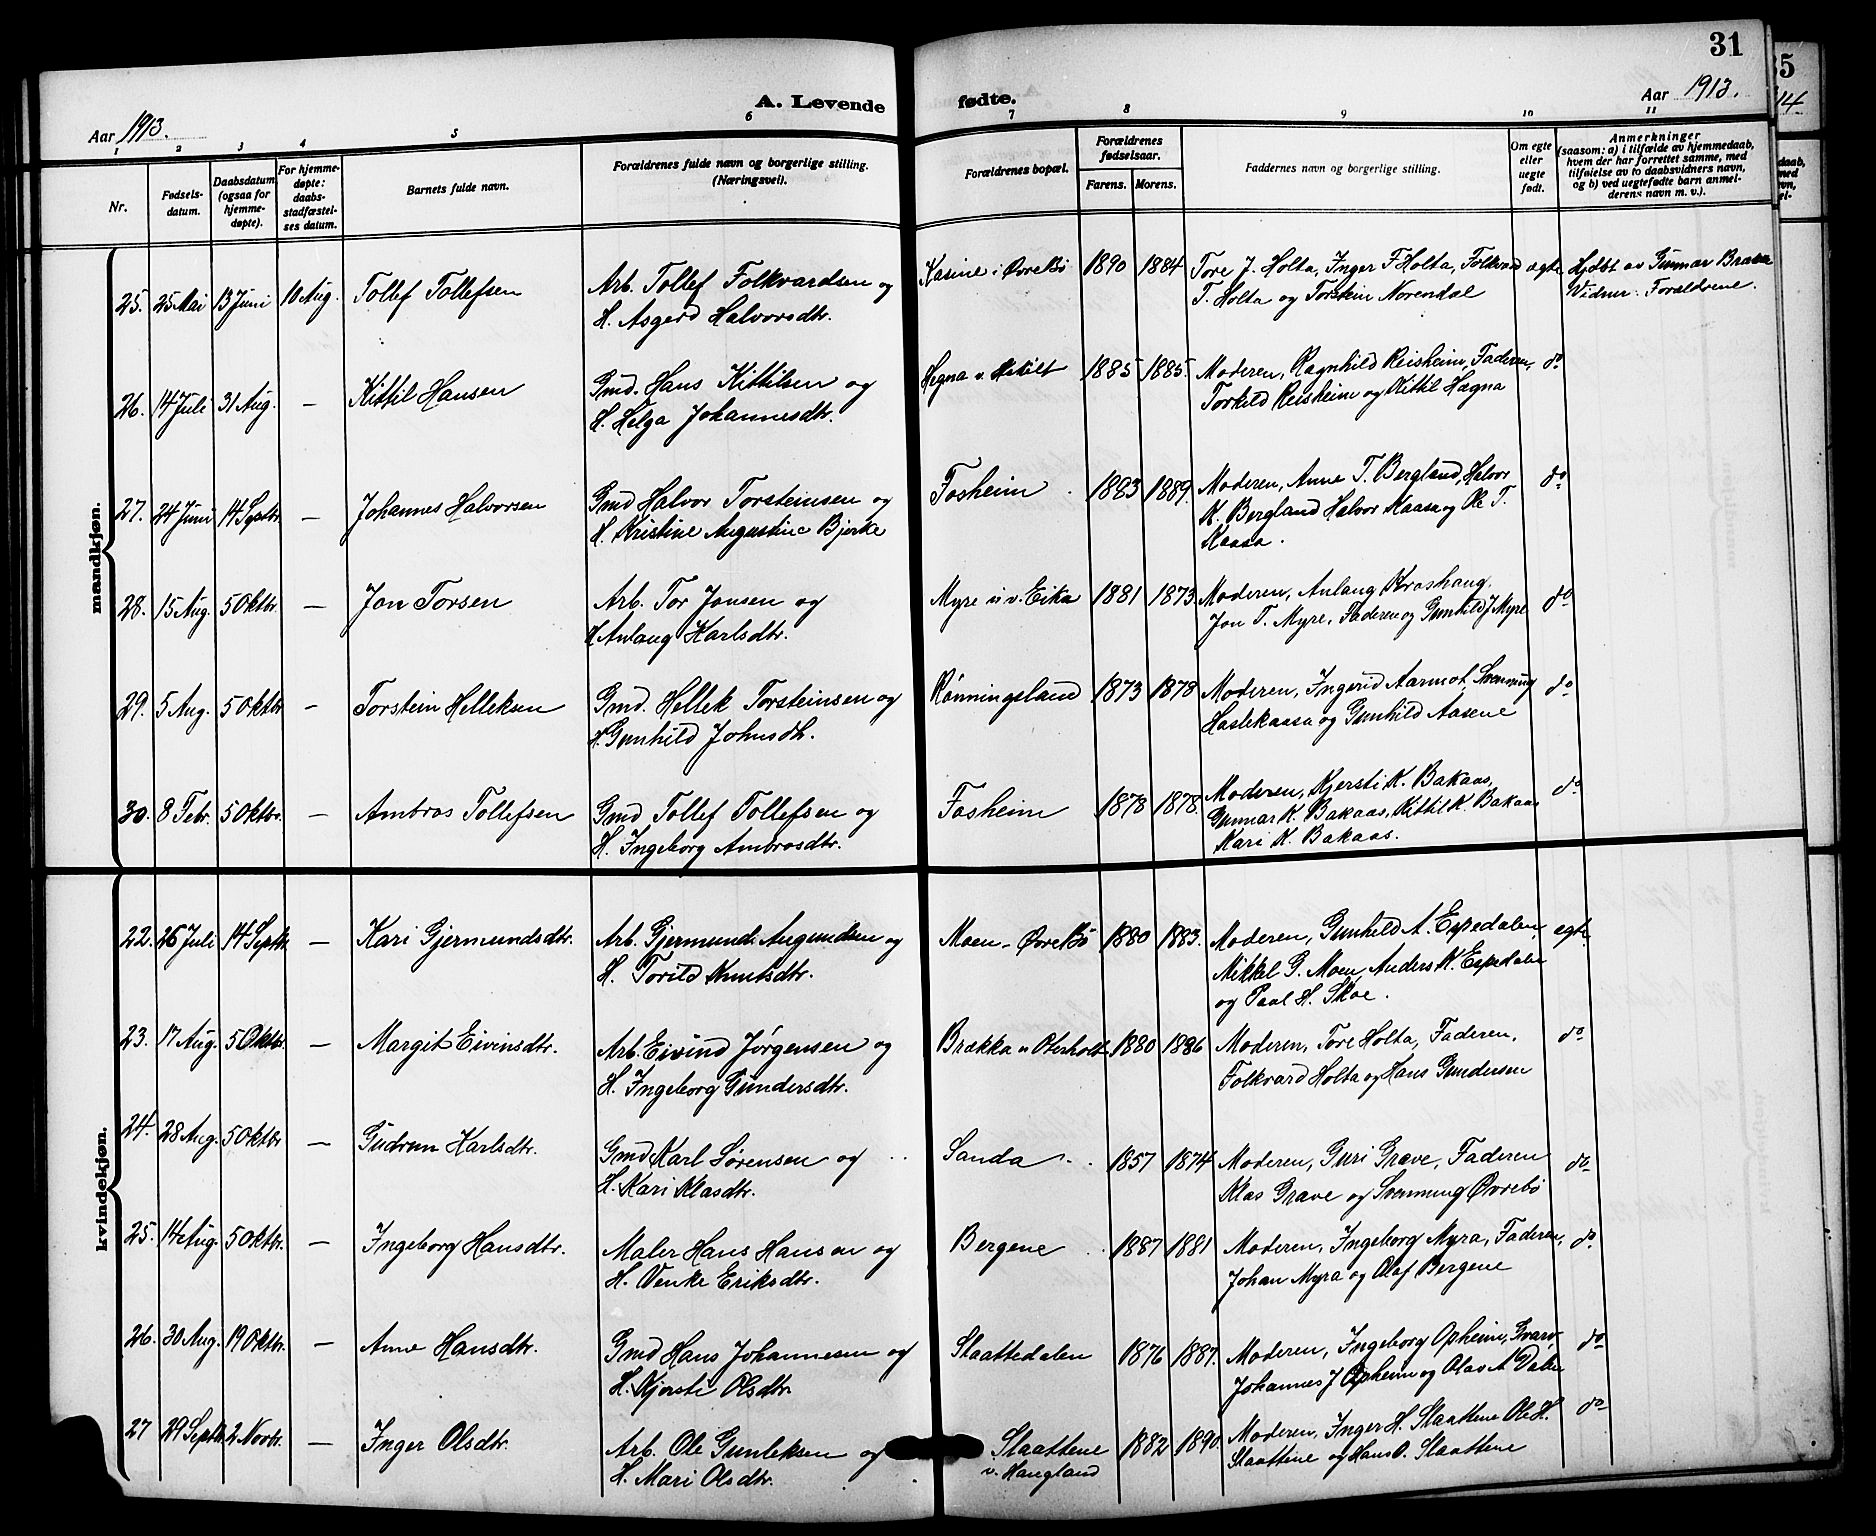 31
35
A. Levende fødte.
Aar 1913.
Aar 1913.
14
1 2 3 4 5 6 7 8 9 10 11
Nr.
Fødsels-datum.
Daabsdatum (ogsaa for hjemme-døpte).
For hjemme-døpte: daabs-stadfæstel-ses datum.
Barnets fulde navn.
Forældrenes fulde navn og borgerlige stilling. (Næringsvei).
Forældrenes bopæl.
Forældrenes fødselsaar.
Farens. Morens.
Faddernes navn og borgerlige stilling.
Om egte eller uegte født.
Anmerkninger (saasom: a) i tilfælde av hjemmedaab, hvem der har forrettet samme, med tilføielse av to daabsvidners navn, og b) ved uegtefødte barn anmel-derens navn m. v.).
mandkjøn.
25. 25 Mai 13 Juni 10 Aug. Tollef Tollefsen Arb. Tollef Folkvardsen og Kasine i Øvrebø 1890 1884 Tore J. Holta, Inger F Holta, Folkvard egte Hjdbt av Gunnar Braaa
H. Asgerd Halvorsdtr. T. Holta og Torstein Norendal Vidner: Forældrene.
26. 14 Juli 31 Aug. — Kittil Hansen Gmd. Hans Kittilsen og Hegna v. 1885 1885. Moderen, Ragnhild Reisheim, Faderen, do
H. Helga Johannesdtr. Torkild Reisheim og Kittil Hægna
27. 24 Juni 14 Septbr. — Johannes Halvorsen Gmd Halvor Torsteinsen og Fosheim 1883 1889. Moderen, Anne T. Bergland, Halvor do
H. Kristine Augustine Bjerke K. Bergland Halvor Kaasa og Ole T.
Kaasa.
28. 15 Aug. 5 Oktbr. — Jon Torsen Arb. Tor Jonsen og Myre u v. Eika 1881 1873 Moderen, Anlaug Kroshaug. do
H Anlaug Karlsdtr. Jon T. Myre, Faderen og Gunhild J Myre
29. 5 Aug. 5 Oktbr — Torstein Helleksen Gmd. Hellek Torsteinsen og Rønningsland 1873 1878 Moderen, Ingerid Aarmot, Svenning do
H. Gunhild Johnsdtr. Haslekaasa og Gunhild Aasene
30. 8 Febr. 5 Oktbr. — Ambros Tollefsen Gmd Tollef Tollefsen og Fosheim 1878 1878. Moderen, Kjersti K. Bakaas, do
H. Ingeborg Ambrosdtr. Gunnar K. Bakaas, Kittil K. Bakaas
Kari K. Bakaas.
kvindekjøn.
22. 26 Juli 14 Septbr. — Kari Gjermundsdtr. Arb. Gjermund Augundsen og Moen - Øvrebø 1880 1883. Moderen, Gunhild A. Espedalen, egte
H. Torild Knutsdtr. Mikkel G. Moen, Anders K. Espedalen
og Paal H. Skoe.
23. 17 Aug. 5 Oktbr. — Margit Eivinsdtr. Arb. Eivind Jørgensen og Brækka u Oterholt 1880 1886 Moderen, Tore Holta, Faderen, do
H. Ingeborg Gundersdtr. Folkvard Holta og Hans Gundersen
24. 28 Aug. 5 Oktbr — Gudrun Karlsdtr. Gmd Karl Sørensen og Sanda 1857 1874 Moderen, Guri Grave, Faderen do
H. Kari Klasdtr. Klas Grave og Svenning Øvrebø
25. 14 Aug. 5 Oktbr. — Ingeborg Hansdtr. Maler Hans Hansen og Bergene 1887 1881 Moderen, Ingeborg Myra, Faderen, do
H. Venke Eriksdtr. Johan Myra og Olaf Bergene
26. 30 Aug. 19 Oktbr. — Anne Hansdtr. Gmd Hans Johannesen og Slaattedalen 1876 1887. Moderen, Ingeborg Opheim, Gvarv do
H. Kjersti Olsdtr Johannes J Opheim og Olav A Dalen
27 29 Septbr. 2 Novbr. — Inger Olsdtr. Arb. Ole Gunleksen og Slaattene 1882 1890. Moderen, Inger H. Slaattene Ole H. do
H. Mari Olsdtr. v. Haugland Slaattene og Hans O. Slaattene